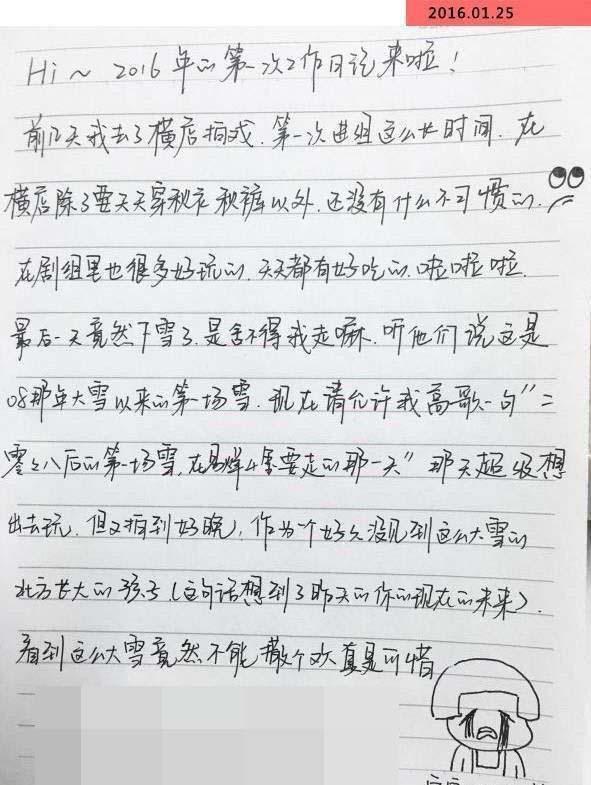 2016.01.25
Hi~2016年的第一次工作日记来啦!
前几天我去了横店拍戏.第一次进组这么长时间.在
横店除了要天天穿秋衣秋裤以外.还没有什么不习惯的.
在剧组里也很多好玩的.天天都有好吃的.啦啦啦.
最后一天竟然下雪了.是舍不得我走嘛.听他们说这是
08那年大雪以来的第一场雪.现在请允许我高歌一句"二
零零八后的第一场雪.在易烊千玺要走的那一天"那天超级想
出去玩.但又拍到好晚,作为一个好久没见到这么大雪的
北方长大的孩子(这句话想到了昨天的你的现在的未来).
看到这么大雪竟然不能撒个欢真是可惜